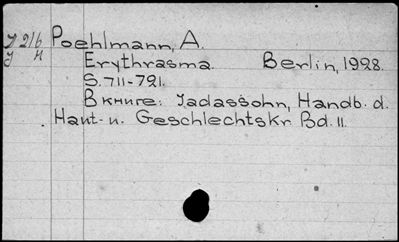 J 216 Poehlmann, A.
J H Erythrasma. Berlin, 1928.
S. 711-721.
В книге: Jadassohn, Handb. d.
Haut- u. Geschlechtskr Bd. II.